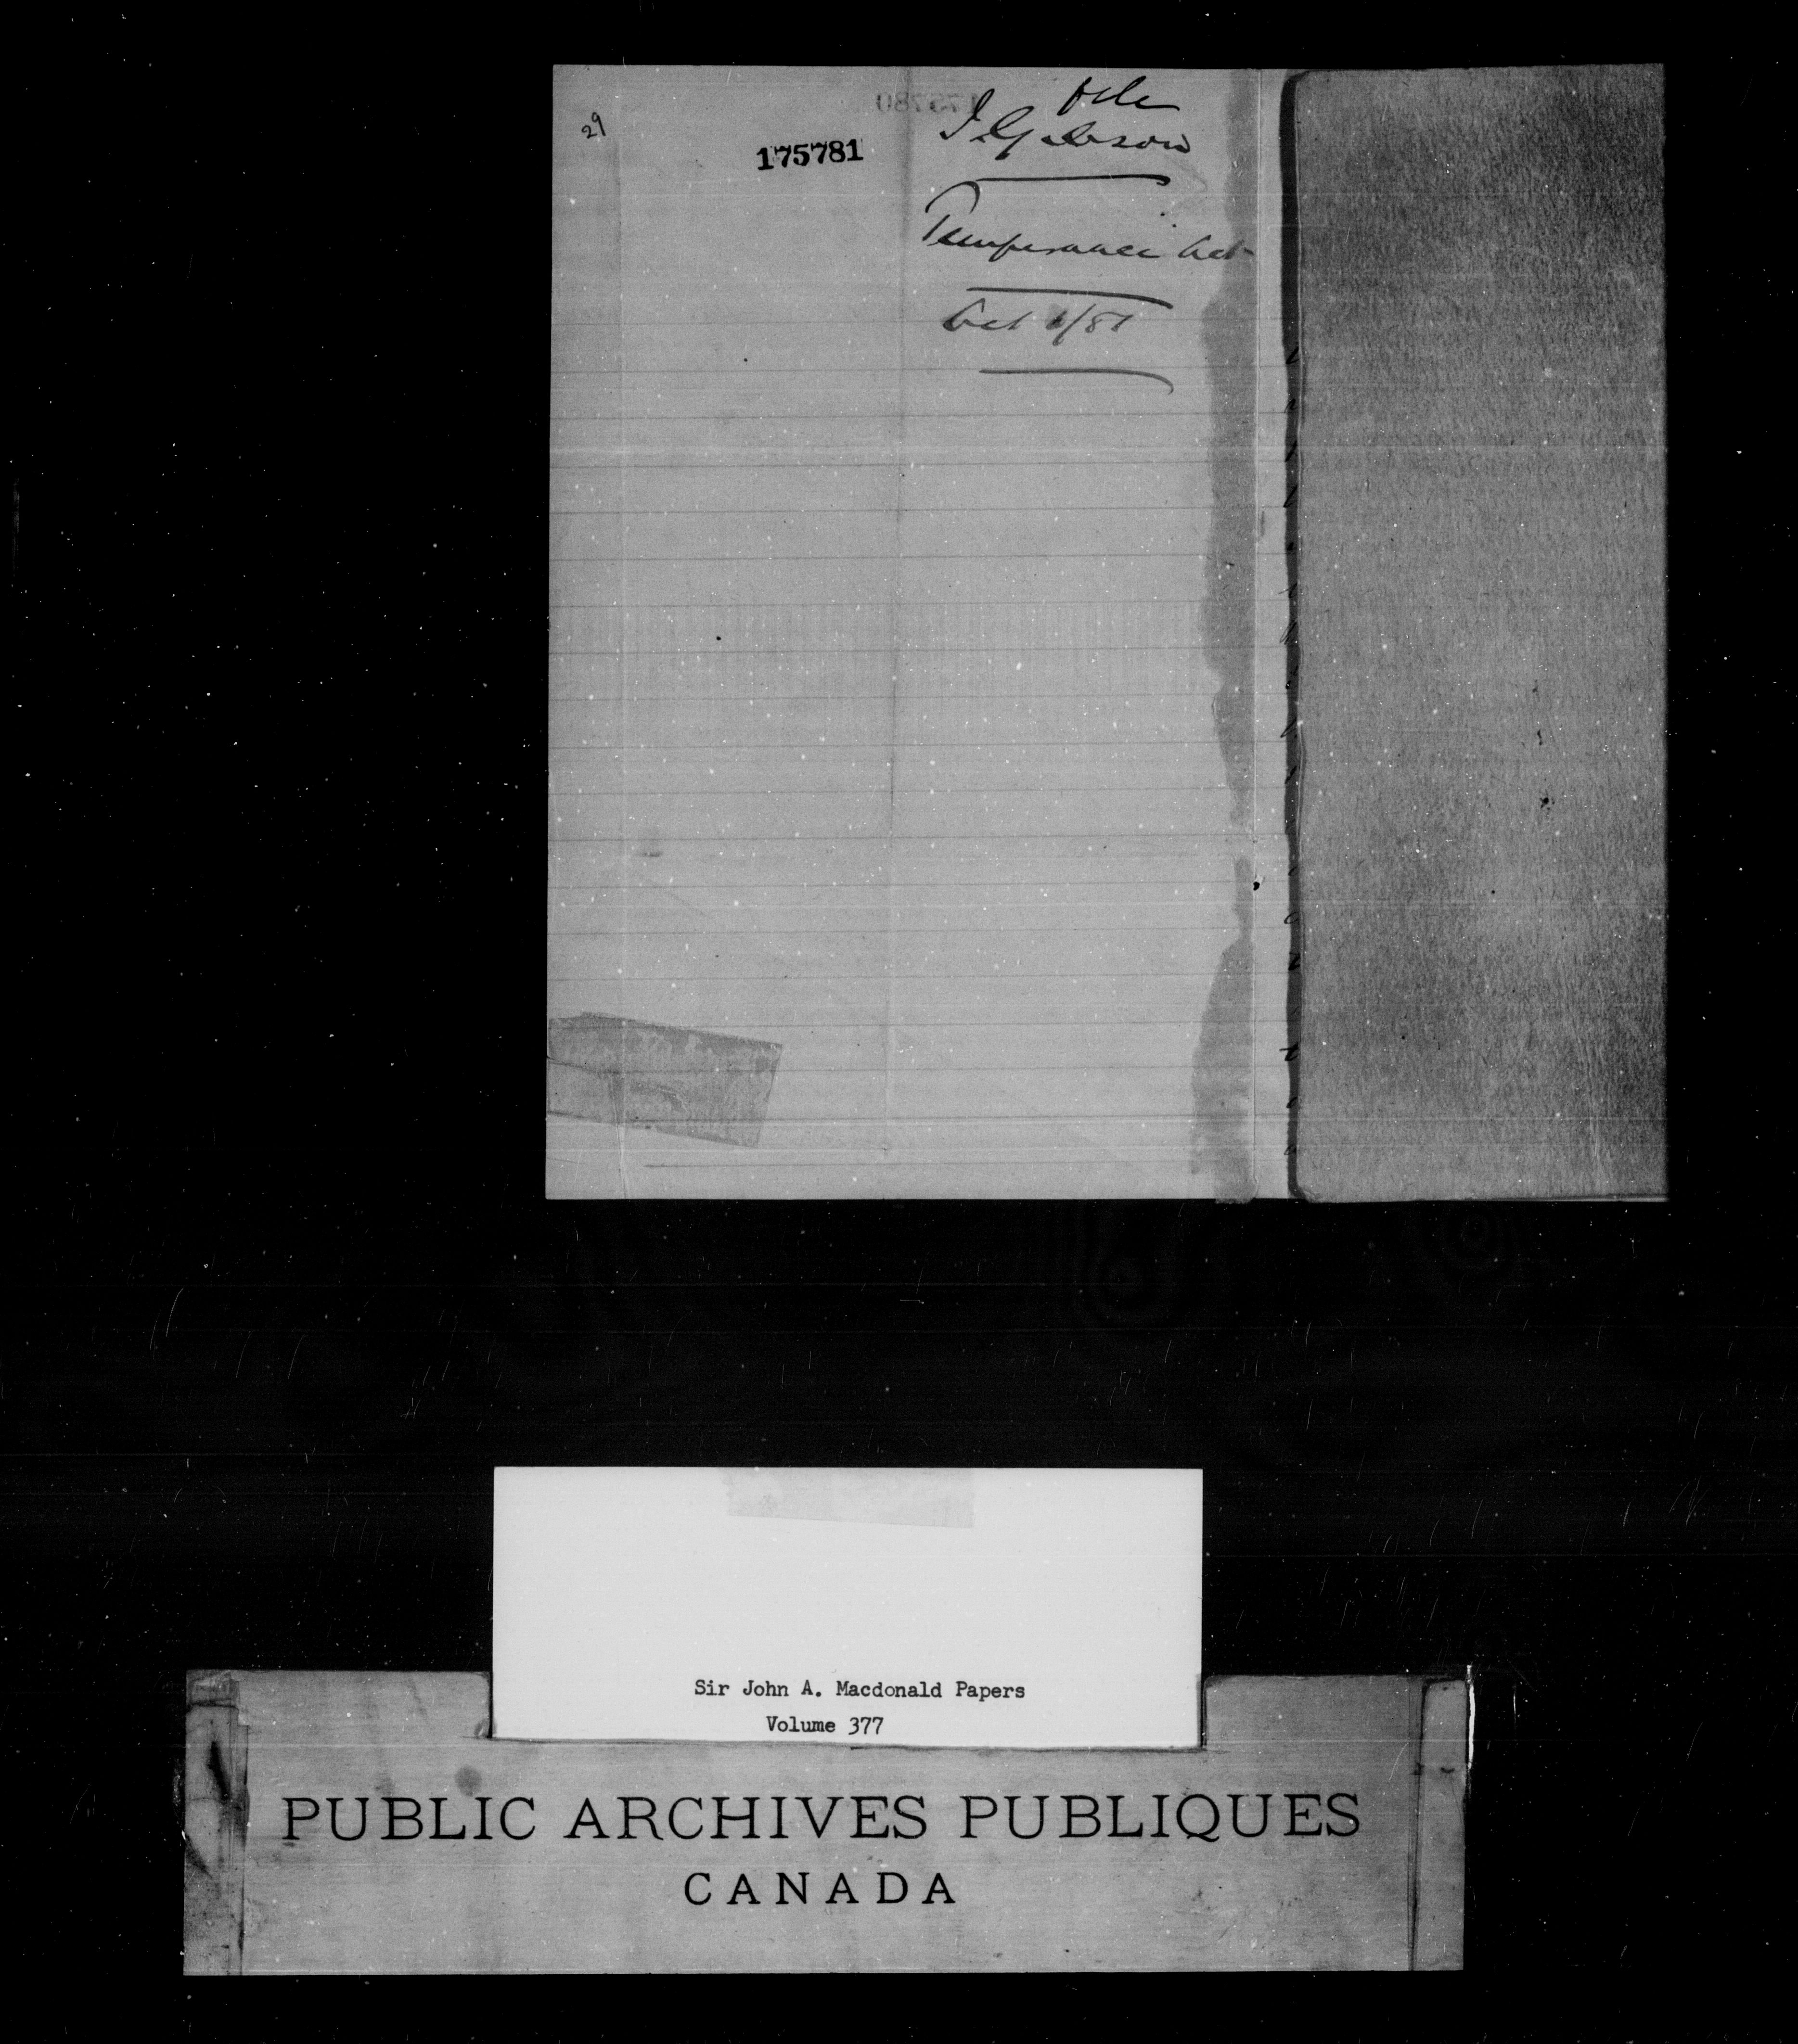 29
175781
file
J. Gibson
Temperance Act
Oct 6/81
Sir John A. Macdonald Papers
Volume 377
PUBLIC ARCHIVES PUBLIQUES
CANADA